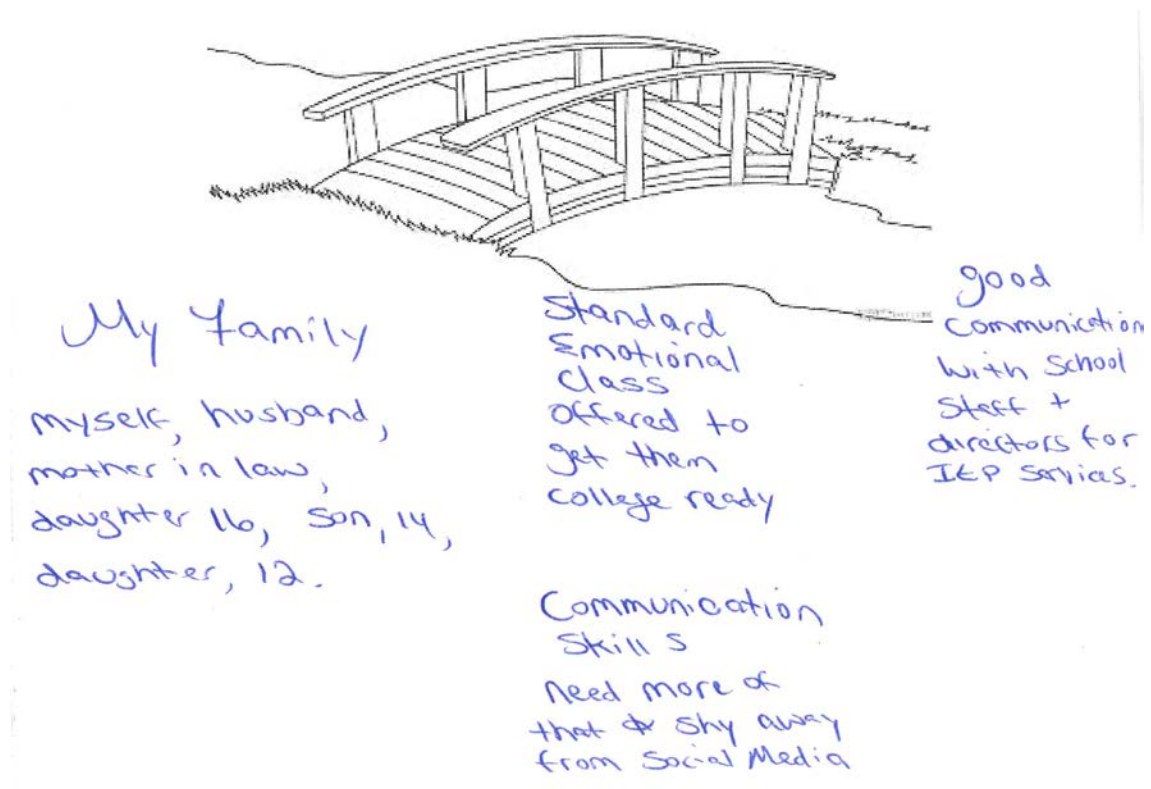 My Family
myself, husband,
mother in law,
daughter 16, son, 14,
daughter, 12.
Standard
Emotional
Class
offered to
get them
college ready
Communication
Skills
need more of
that & shy away
from Social Media
good
Communication
with School
Staff +
directors for
IEP Services.